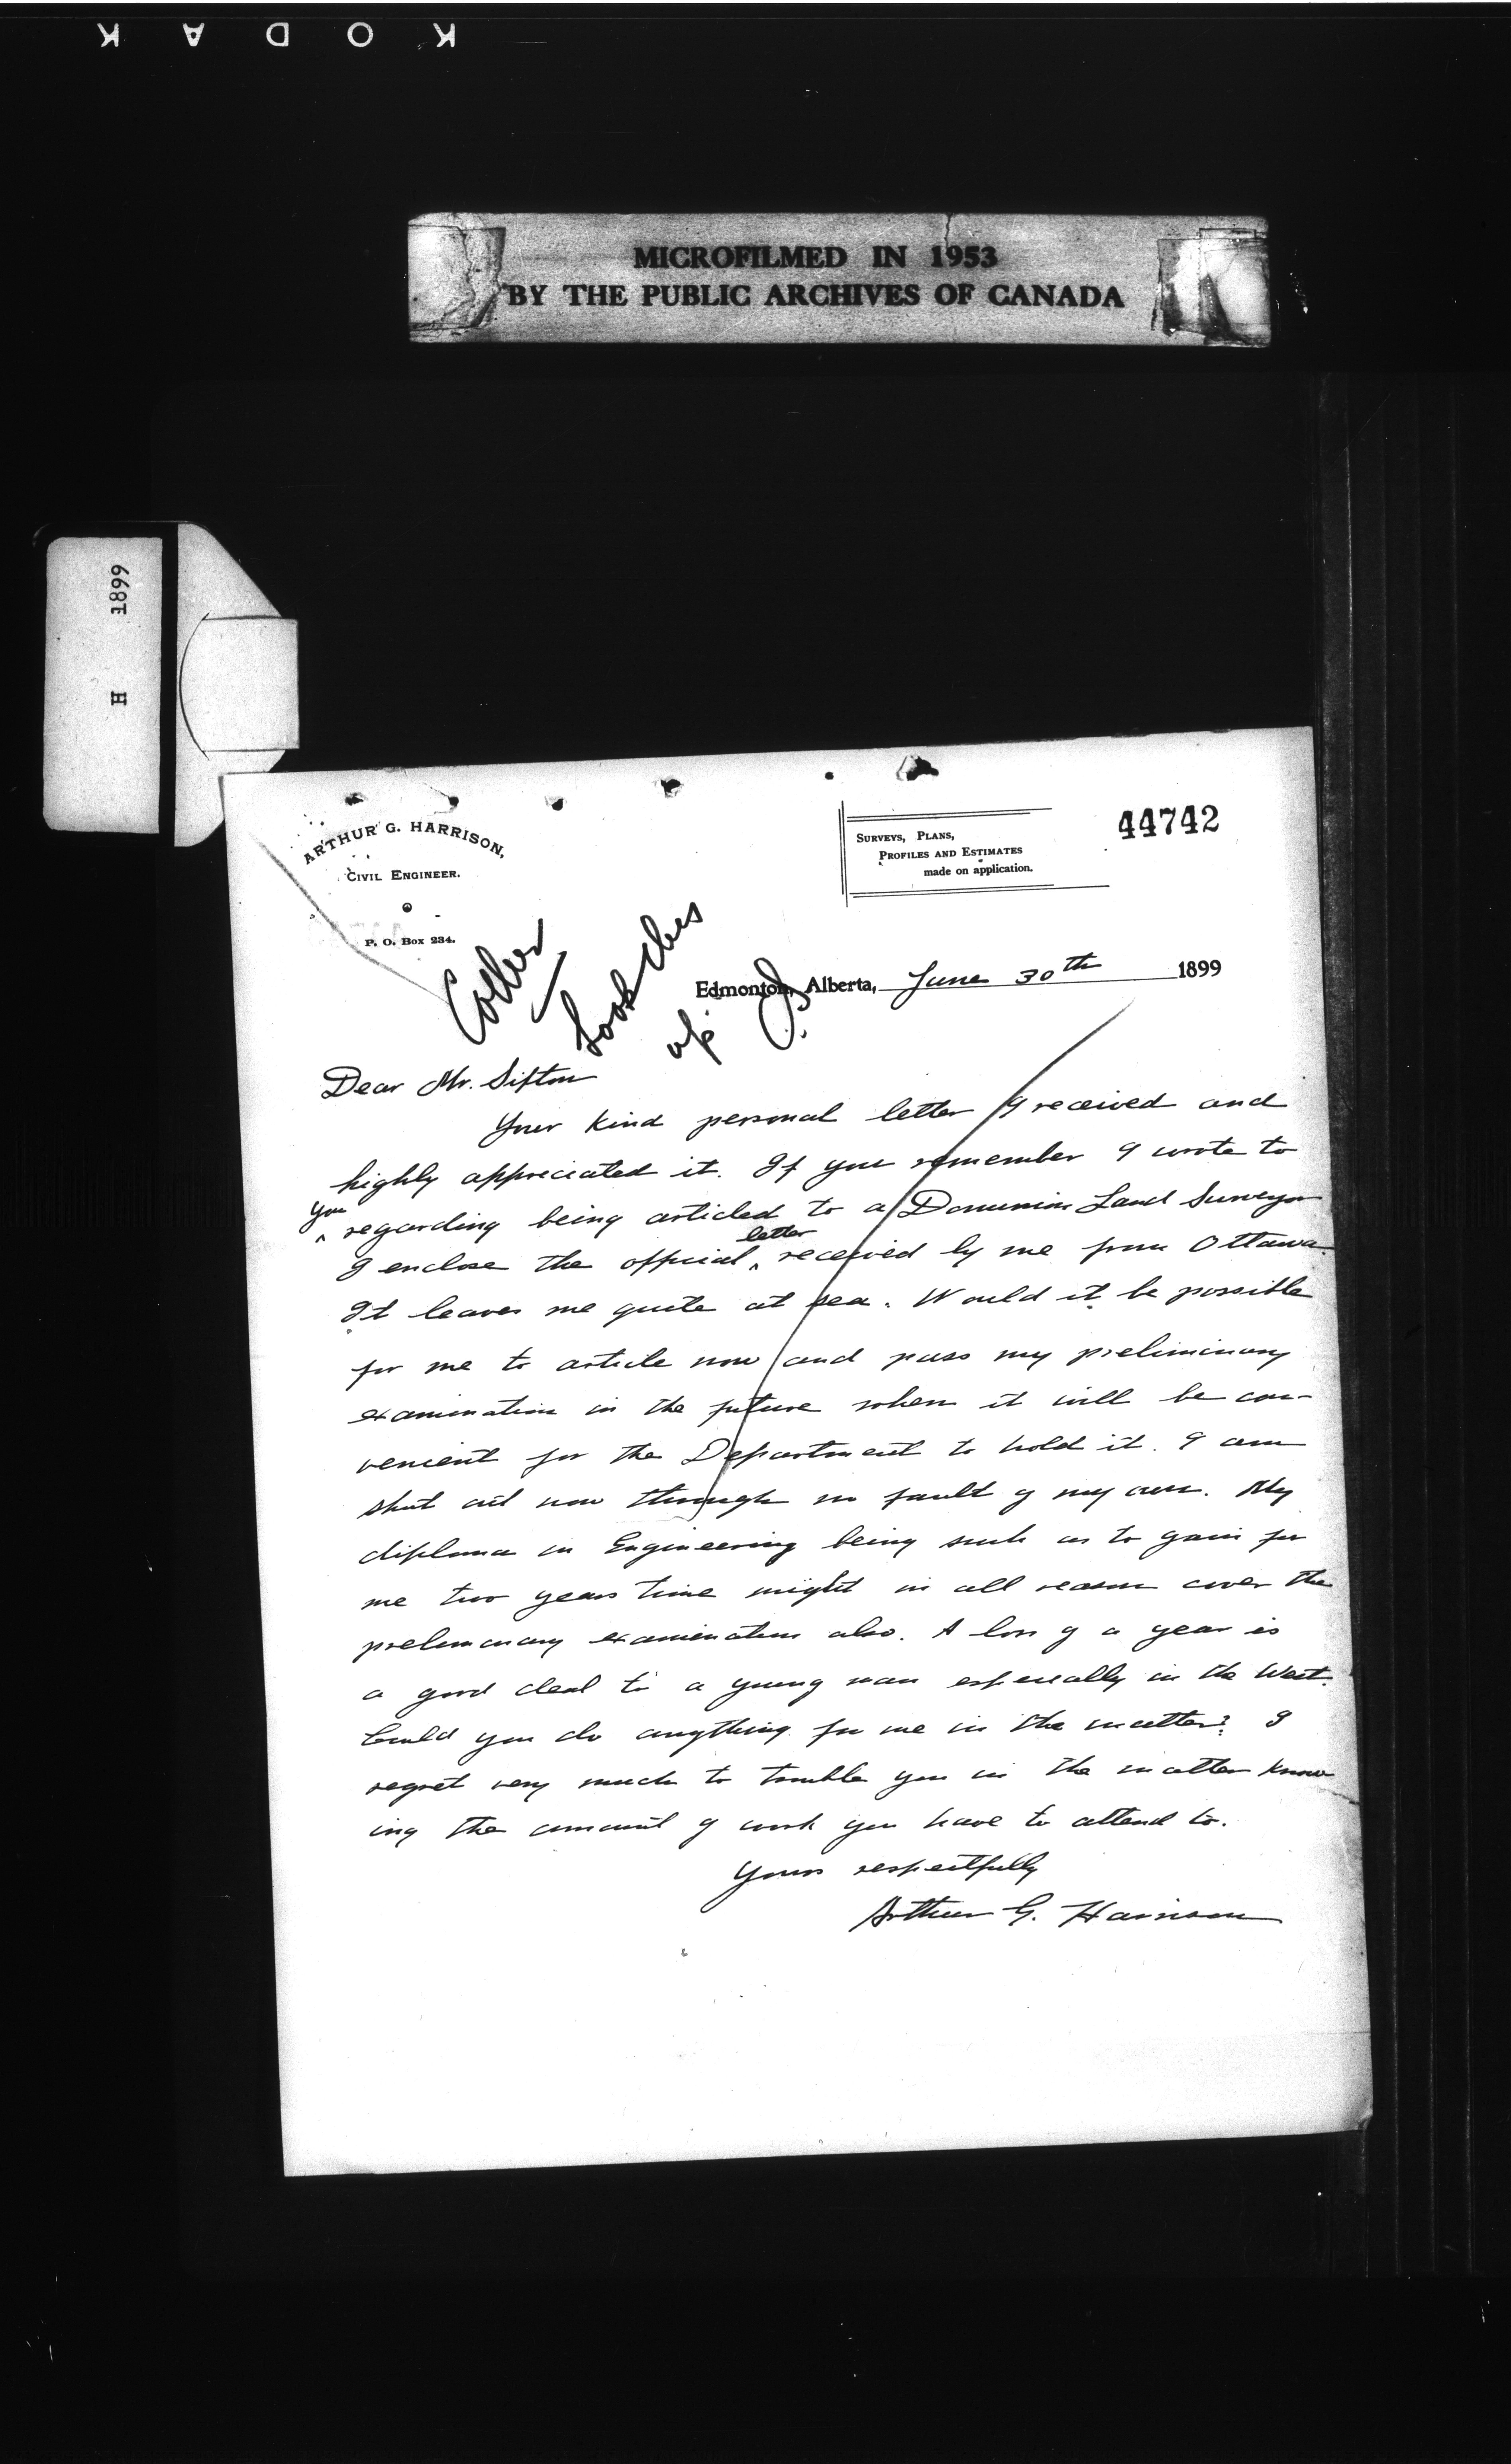 KODAK
MICROFILMED IN 1953
BY THE PUBLIC ARCHIVES OF CANADA
H 1899
44742
ARTHUR G. HARRISON,
CIVIL ENGINEER.
P. O. Box 234.
SURVEYS, PLANS,
PROFILES AND ESTIMATES
made on application.
Look this
up
Edmonton, Alberta, June 30th 1899
Dear Mr. Sifton
Your kind personal letter I received and
highly appreciated it. If you remember I wrote to
you regarding being articled to a Dominion Land Surveyor
I enclose the official letter received by me from Ottawa.
It leaves me quite at sea. Would it be possible
for me to article now and pass my preliminary
examination in the future when it will be con-
venient for the Department to hold it. I am
shut out now through no fault of my own. My
diploma in Engineering being such as to gain for
me two years time might in all reason cover the
preliminary examination also. A loss of a year is
a good deal to a young man especially in the West.
Could you do anything for me in the matter? I
regret very much to trouble you in the matter know
ing the amount of work you have to attend to.
Yours respectfully
Arthur G. Harrison